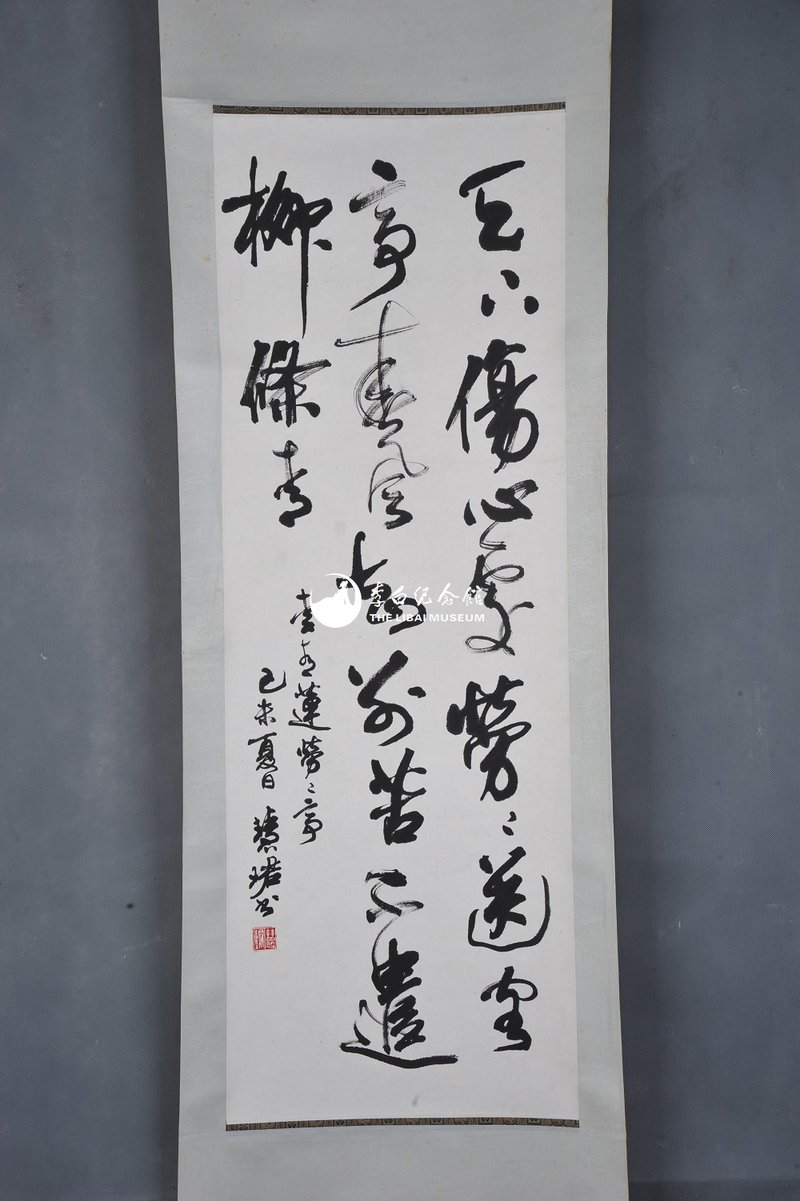 天下傷心處勞〻送客
亭春風知別苦不遣
柳條青
青蓮勞〻亭
己未夏日慧珺书
李白纪念館
THE LIBAI MUSEUM